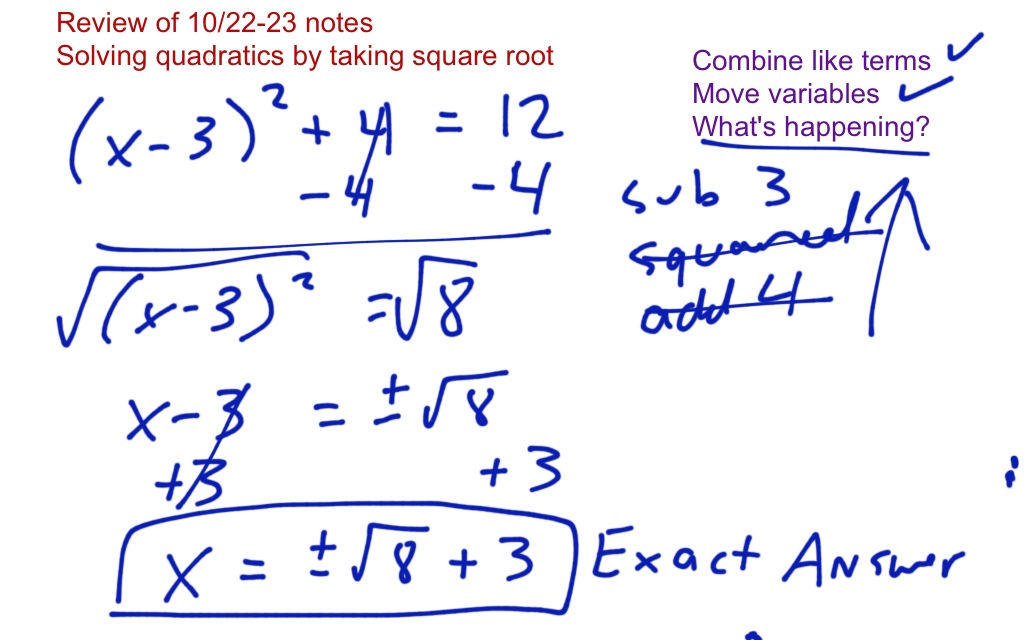 Review of 10/22-23 notes
Solving quadratics by taking square root
Combine like terms ✓
Move variables ✓
What's happening?
(x-3)² + 4 = 12
-4 -4
√(x-3)² = √8
x-3 = ±√8
+3 +3
x = ±√8 + 3 Exact Answer
sub 3
squared
add 4